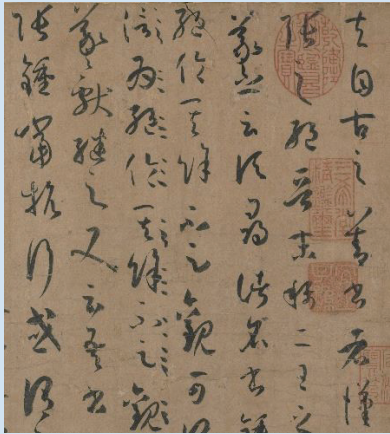 夫自古之善書者漢
張之絕晉末稱二王之
羲之云頃尋諸名書鍾
絕倫其餘不足觀可謂
信為絕倫其餘不足觀
羲獻繼之又云吾書
張鍾當抗行或謂